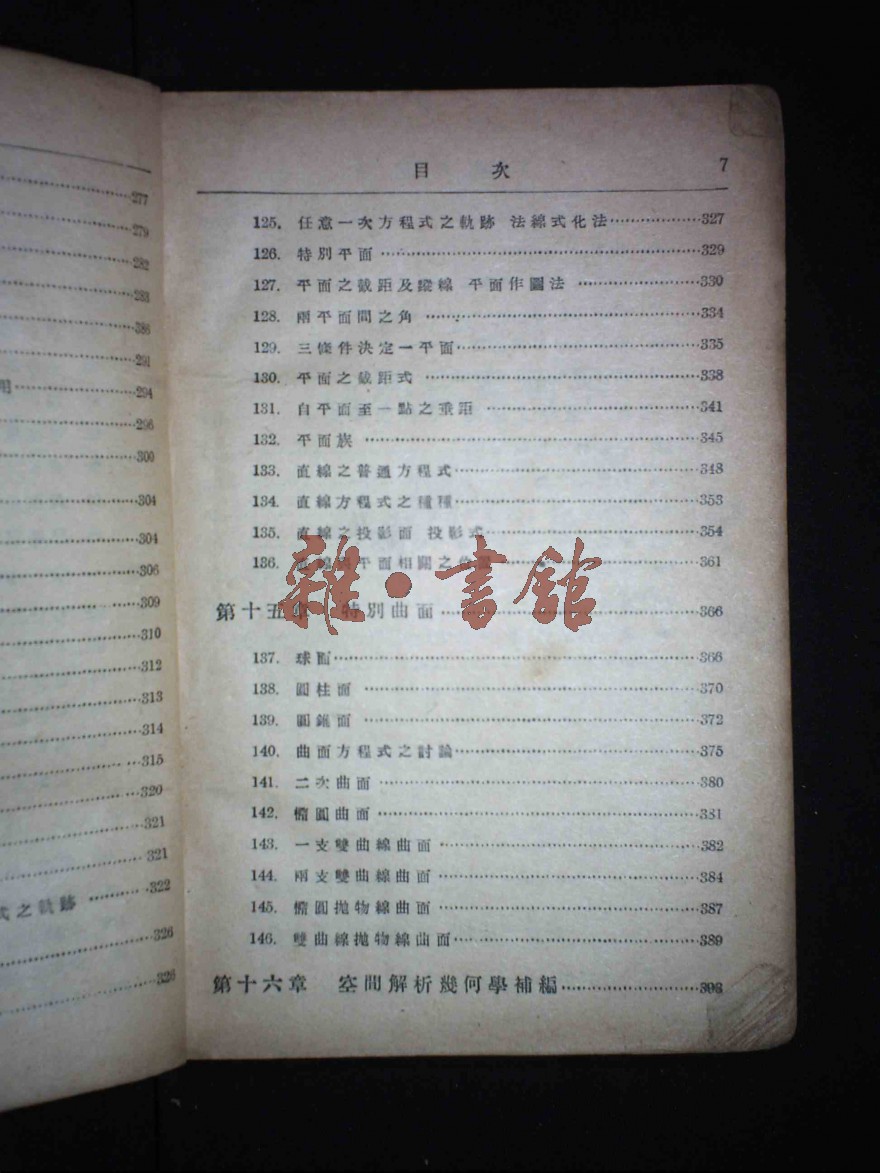 277
279
282
283
386
291
用 294
296
300
304
304
306
309
310
312
313
314
315
320
321
321
式之軌跡 322
326
326
目 次 7
125. 任意一次方程式之軌跡 法線式化法 327
126. 特別平面 329
127. 平面之截距及蹤線 平面作圖法 330
128. 兩平面間之角 334
129. 三條件決定一平面 335
130. 平面之截距式 338
131. 自平面至一點之垂距 341
132. 平面族 345
133. 直線之普通方程式 348
134. 直線方程式之種種 353
135. 直線之投影面 投影式 354
136. 直線 平面相關之 361
雜·書館
第十五章 特別曲面 366
137. 球面 366
138. 圓柱面 370
139. 圓錐面 372
140. 曲面方程式之討論 375
141. 二次曲面 380
142. 橢圓曲面 381
143. 一支雙曲線曲面 382
144. 兩支雙曲線曲面 384
145. 橢圓拋物線曲面 387
146. 雙曲線拋物線曲面 389
第十六章 空間解析幾何學補編 393